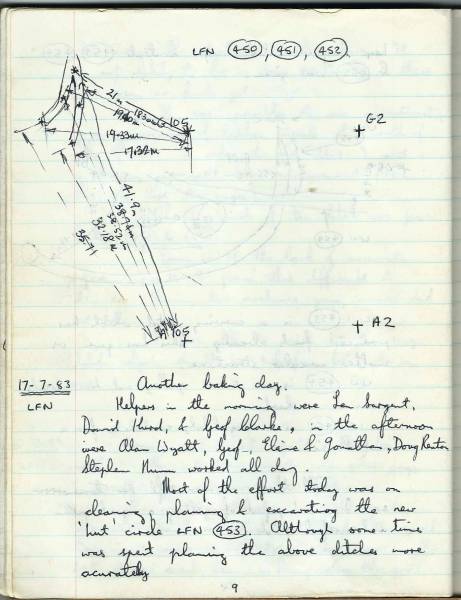 LFN 450, 451, 452
21m
18.30m
105
19.33m
17.32m
G2
41.9m
38.74m
38.52m
32.18m
35.71
A 105
A2
17-7-83
LFN
Another baking day.
Helpers in the morning were Len Sargent,
David Hurd, & Geof Clarke, in the afternoon
were Alan Wyatt, Geof, Elaine & Jonathan, Doug
Stephen worked all day.
Most of the effort today was on
cleaning, planning & excavating the new
'hut' circle LFN 453. Although some time
was spent planning the above ditches more
acurately
9